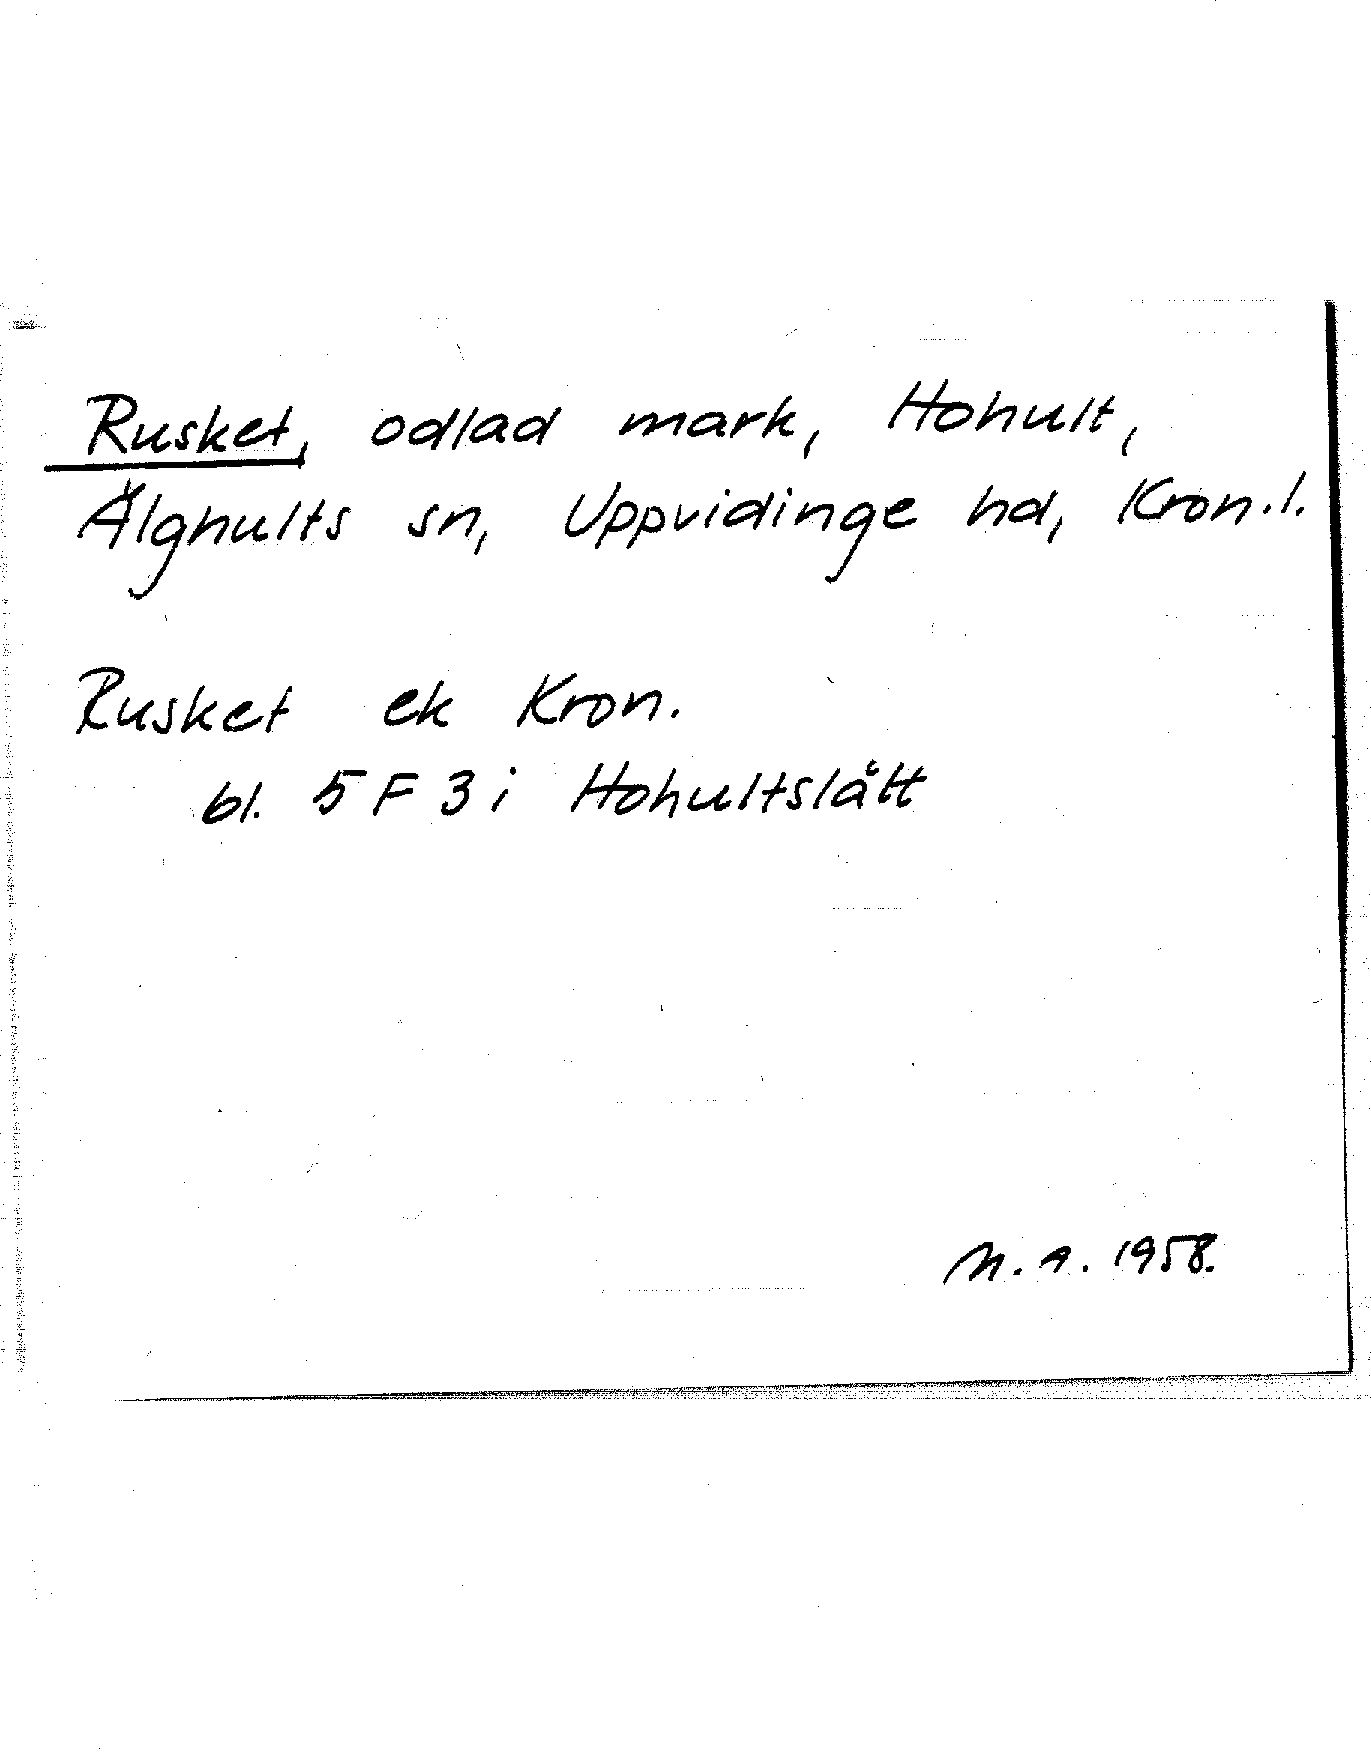 Rusket, odlad mark, Hohult,
Älghults sn, Uppvidinge hd, Kron.l.
Rusket ek Kron.
bl. 5 F 3 i Hohultslätt
M.A. 1958.